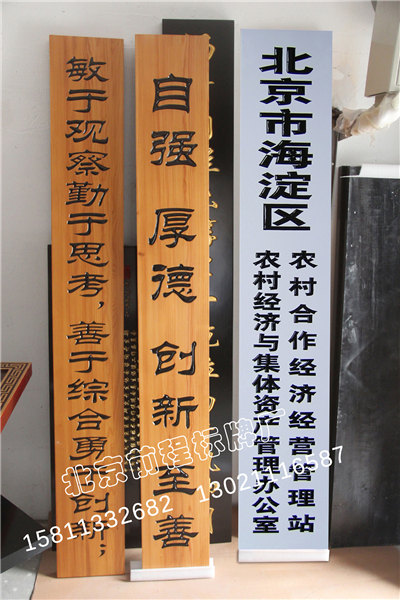 敏于观察勤于思考，善于综合勇于创新；
自强 厚德 创新 至善
北京市海淀区
农村合作经济经营管理站
农村经济与集体资产管理办公室
北京前程标牌
15811332682